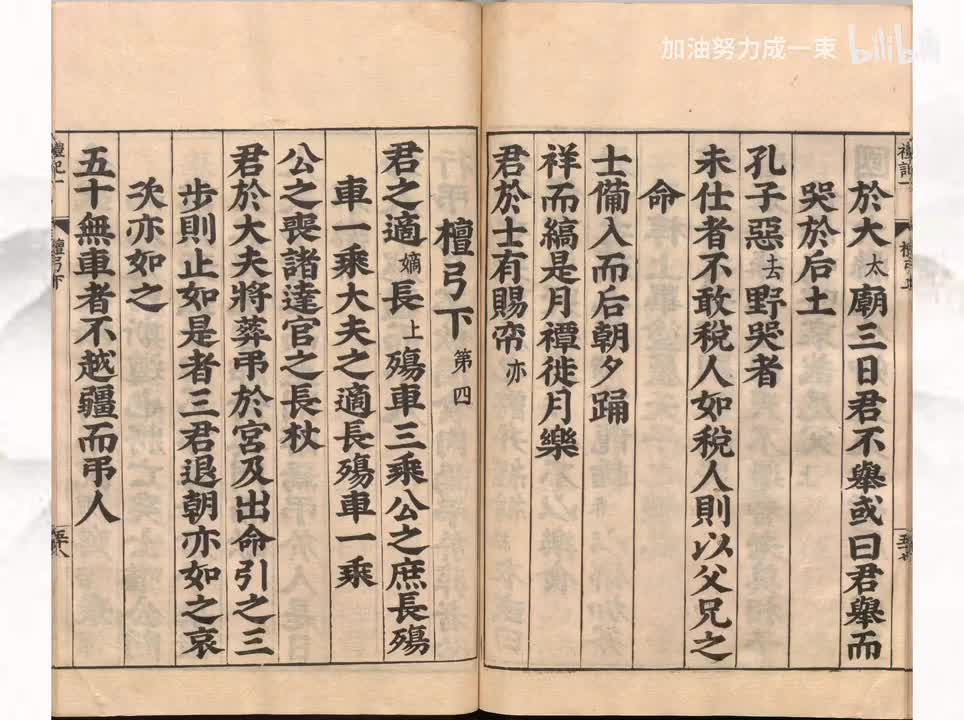 加油努力成一束 bilibili
於大太廟三日君不舉或曰君舉而
哭於后土
孔子惡去野哭者
未仕者不敢稅人如稅人則以父兄之
命
士備入而后朝夕踊
祥而縞是月禫徙月樂
君於士有賜帟亦
檀弓下第四
君之適嫡長上殤車三乘公之庶長殤
車一乘大夫之適長殤車一乘
公之喪諸達官之長杖
君於大夫將葬弔於宮及出命引之三
步則止如是者三君退朝亦如之哀
次亦如之
五十無車者不越疆而弔人